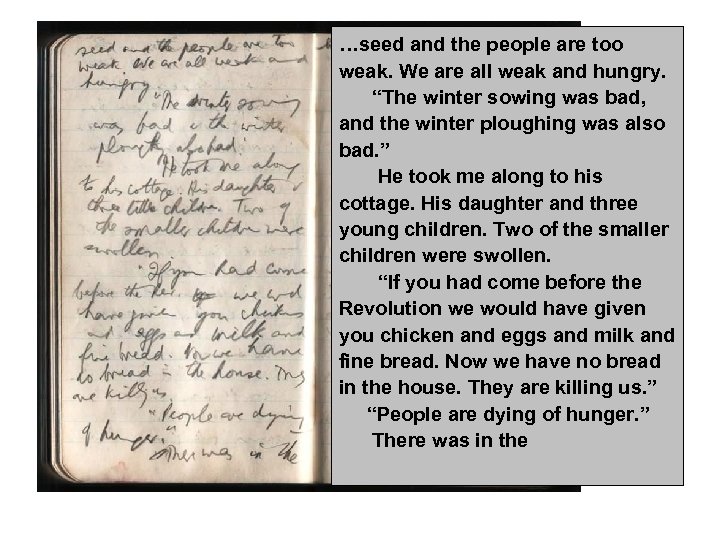 seed and the people are too
weak. We are all weak and
hungry.
"The winter sowing
was bad & the winter
also bad."
He took me along
to his cottage. His daughter &
three little children. Two of
the smaller children were
swollen.
"If you had come
before the Rev. we wd
have given you chicken
and eggs and milk and
fine bread. Now we have
no bread in the house. They
are killing us.
"People are dying
of hunger."
There was in the
…seed and the people are too
weak. We are all weak and hungry.
“The winter sowing was bad,
and the winter ploughing was also
bad. ”
He took me along to his
cottage. His daughter and three
young children. Two of the smaller
children were swollen.
“If you had come before the
Revolution we would have given
you chicken and eggs and milk and
fine bread. Now we have no bread
in the house. They are killing us. ”
“People are dying of hunger. ”
There was in the